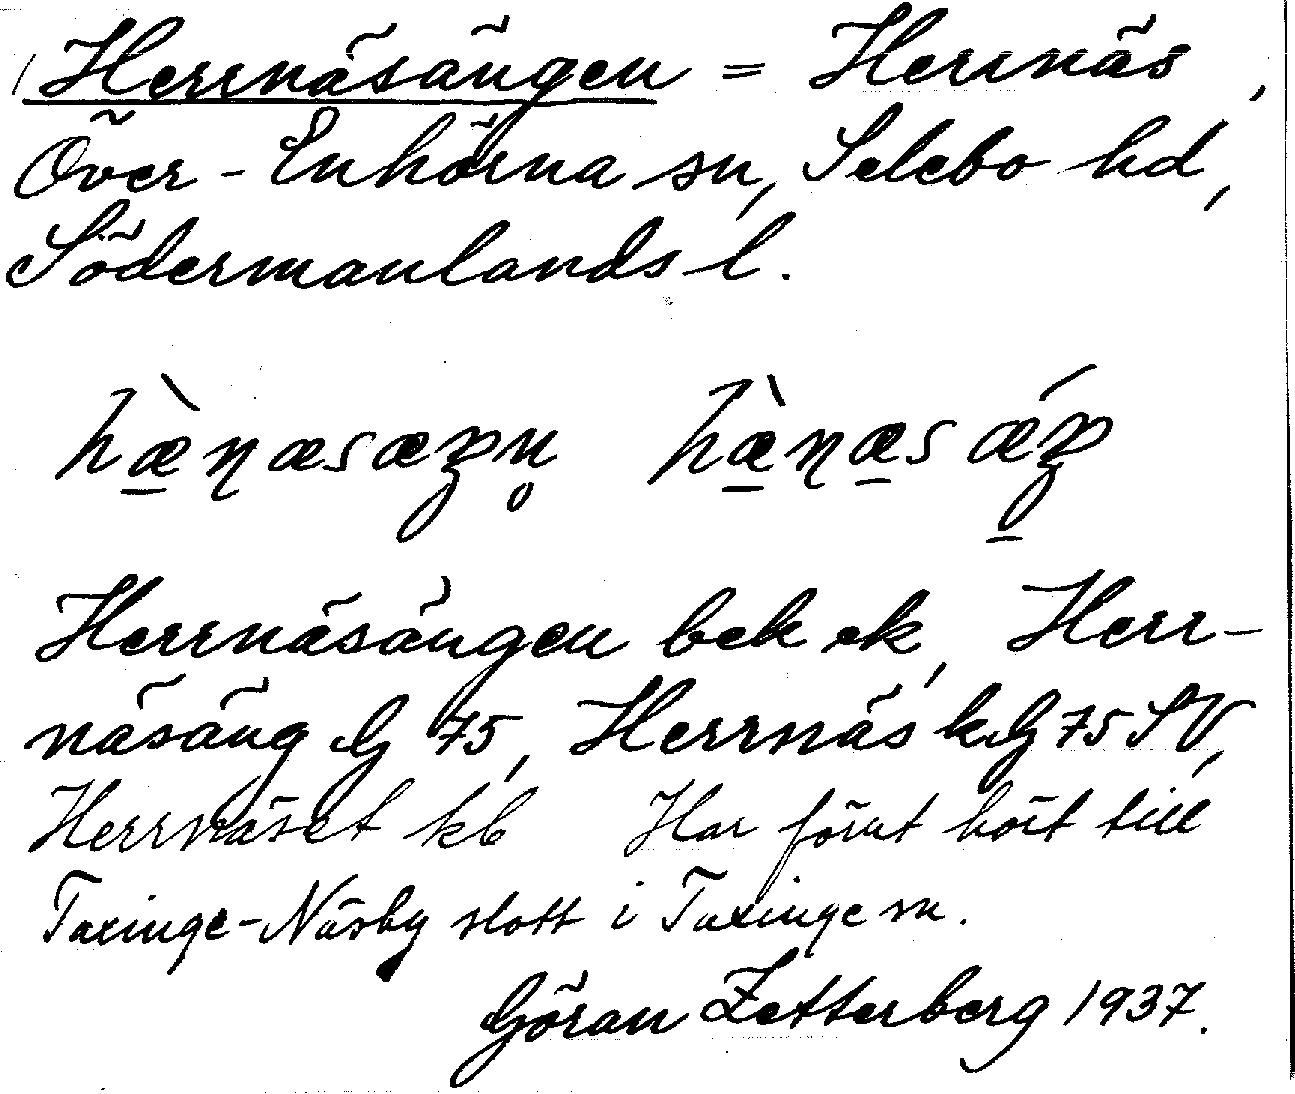 Herrnäsängen = Herrnäs,
Över-Enhörna sn, Selebo hd,
Södermanlands l.
Herrnäsängen bek ek, Herr-
näsäng G 75, Herrnäs k.G 75 SV,
Herrnäset kb Har förut hört till
Taxinge-Näsby slott i Taxinge sn.
Göran Zetterberg 1937.